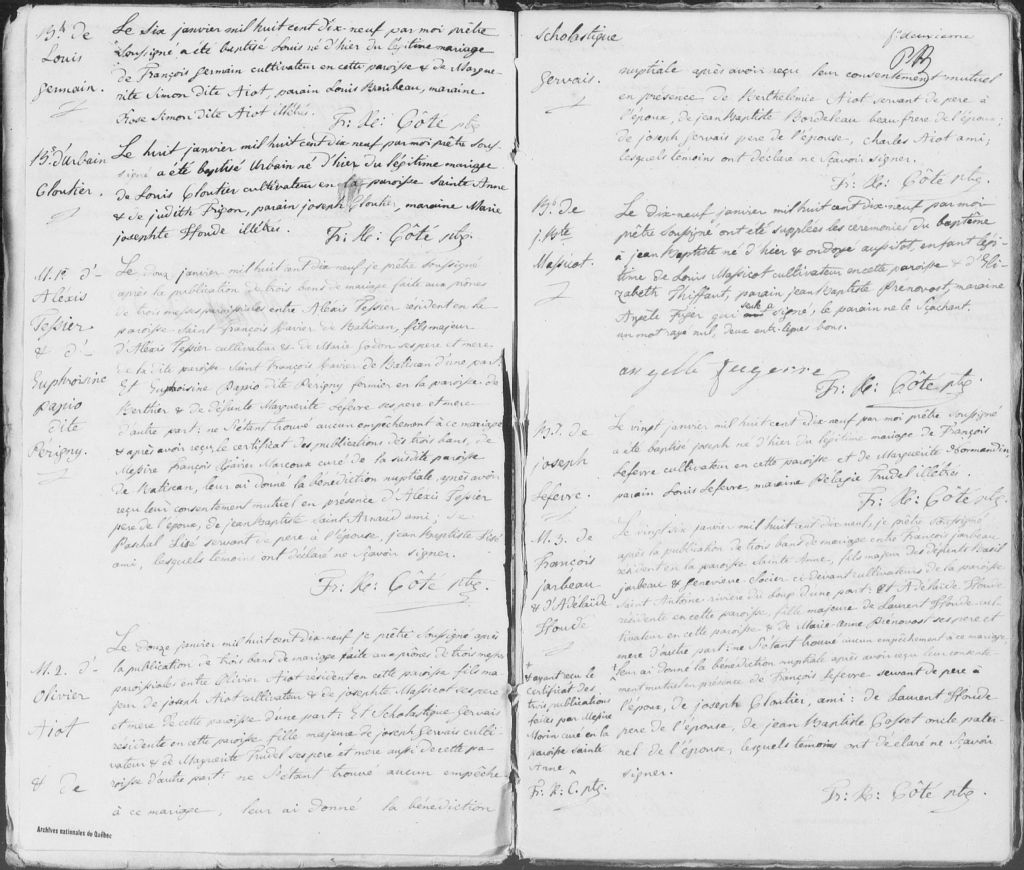 B.4. de
Louis
Germain.
Le six janvier mil huit cent dix-neuf par moi prêtre
soussigné a été baptisé Louis né d'hier du légitime mariage
de François Germain cultivateur en cette paroisse & de Margue-
rite Simon dite Aiot, parain Louis Baribeau, maraine
Rose Simon dite Aiot illétrés.
Fr: X: Côté ptre
B.5. d'Urbain
Cloutier.
Le huit janvier mil huit cent dix-neuf par moi prêtre sous-
signé a été baptisé Urbain né d'hier du légitime mariage
de Louis Cloutier cultivateur en la paroisse sainte Anne
& de judith Frigon, parain joseph Cloutier, maraine Marie
josephte Houde illétrés.
Fr: X: Côté ptre.
M.1e d'-
Aléxis
Tessier
& d'-
Euphroisine
Papio
dite
Périgny.
Le douze janvier mil huit cent dix-neuf je prêtre soussigné
après la publication de trois bans de mariage faite aux prones
de trois messes paroissiales entre Aléxis Tessier résident en la
paroisse Saint François Xavier de Batiscan, fils majeur
d'Aléxis Tessier cultivateur & de Marie Godon ses pere et mere
de la dite paroisse Saint François Xavier de Batiscan d'une part:
Et Euphroisine Papio dite Perigny fermier en la paroisse de
Berthier & de défunte Marguerite Lefevre ses pere et mere
d'autre part: ne s'étant trouvé aucun empêchement à ce mariage
& après avoir reçu le certificat des publications des trois bans, de
Messire François Xavier Marcoux curé de la susdite paroisse
de Batiscan, leur ai donné la bénédiction nuptiale, après avoir
reçu leur consentement mutuel en présence d'Aléxis Tessier
pere de l'époux, de jean Baptiste Saint Arnaud ami; de
Paschal Lisé servant de pere à l'épouse, jean Baptiste Lisé
ami, lesquels témoins ont déclaré ne sçavoir signer.
Fr: X: Côté ptre.
M.2. d'-
Olivier
Aiot
& de
Le douze janvier mil huit cent dix-neuf je prêtre soussigné après
la publication de trois bans de mariage faite aux prônes de trois messes
paroissiales entre Olivier Aiot résident en cette paroisse fils ma-
jeur de joseph Aiot cultivateur & de josephte Massicot ses pere
et mere de cette paroisse d'une part: Et Scholastique Gervais
résidente en cette paroisse fille majeure de joseph Gervais culti-
vateur & de Marguerite Trudel ses pere et mere aussi de cette pa-
roisse d'autre part: ne s'étant trouvé aucun empêche-
à ce mariage, leur ai donné la bénédiction
Archives nationales du Québec
Scholastique
Gervais.
fo deuxieme
nuptiale après avoir reçu leur consentement mutuel
en présence de Berthelemie Aiot servant de pere à
l'époux, de jean Baptiste Bordeleau beau frere de l'époux;
de joseph Gervais pere de l'épouse, Charles Aiot ami;
lesquels témoins ont déclaré ne sçavoir signer.
Fr: X: Côté ptre.
B.6. de
j. Bte
Massicot.
Le dix-neuf janvier mil huit cent dix-neuf par moi
prêtre soussigné ont été supplées les cérémonies du baptême
à jean Baptiste né d'hier & ondoyé aussitot enfant légi-
time de Louis Massicot cultivateur en cette paroisse & d'Eli-
zabeth Thiffaut, parain jean Baptiste Prenovost, maraine
qui seule a signé, le parain ne le sçachant.
un mot rayé nul, deux entre-lignes bons.
Fr: X: Côté ptre.
B.7. de
joseph
Lefevre.
Le vingt janvier mil huit cent dix-neuf par moi prêtre soussigné
a été baptisé joseph né d'hier du légitime mariage de François
Lefevre cultivateur en cette paroisse et de Marguerite Normandin,
parain Louis Lefevre, maraine Pélagie Trudel illétrés.
Fr: X: Côté ptre.
M.3. de
François
jarbeau
& d'Adélaïde
Houde
Le vingt six janvier mil huit cent dix-neuf, je prêtre soussigné
après la publication de trois bans de mariage entre François jarbeau
résident en la paroisse Sainte Anne, fils majeur des défunts Basil
jarbeau & Geneviève ci devant cultivateurs de la paroisse
Saint Antoine riviere du Loup d'une part: Et Adélaïde Houde
résidente en cette paroisse, fille majeure de Laurent Houde cul-
tivateur en cette paroisse & de Marie-Anne Prenovost ses pere et
mere d'autre part: ne s'étant trouvé aucun empêchement à ce mariage
+ leur ai donné la bénédiction nuptiale après avoir reçu leur consente-
ment mutuel en présence de François Lefevre servant de pere à
l'époux, de joseph Cloutier, ami: de Laurent Houde
pere de l'épouse, de jean Baptiste Gosset oncle pater-
nel de l'épouse, lesquels témoins ont déclaré ne sçavoir
signer.
Fr: X: Côté ptre.
+
& ayant reçu le
certificat des
trois publications
faites par Messire
Morin curé en la
paroisse sainte
Anne
Fr: X: C. ptre.